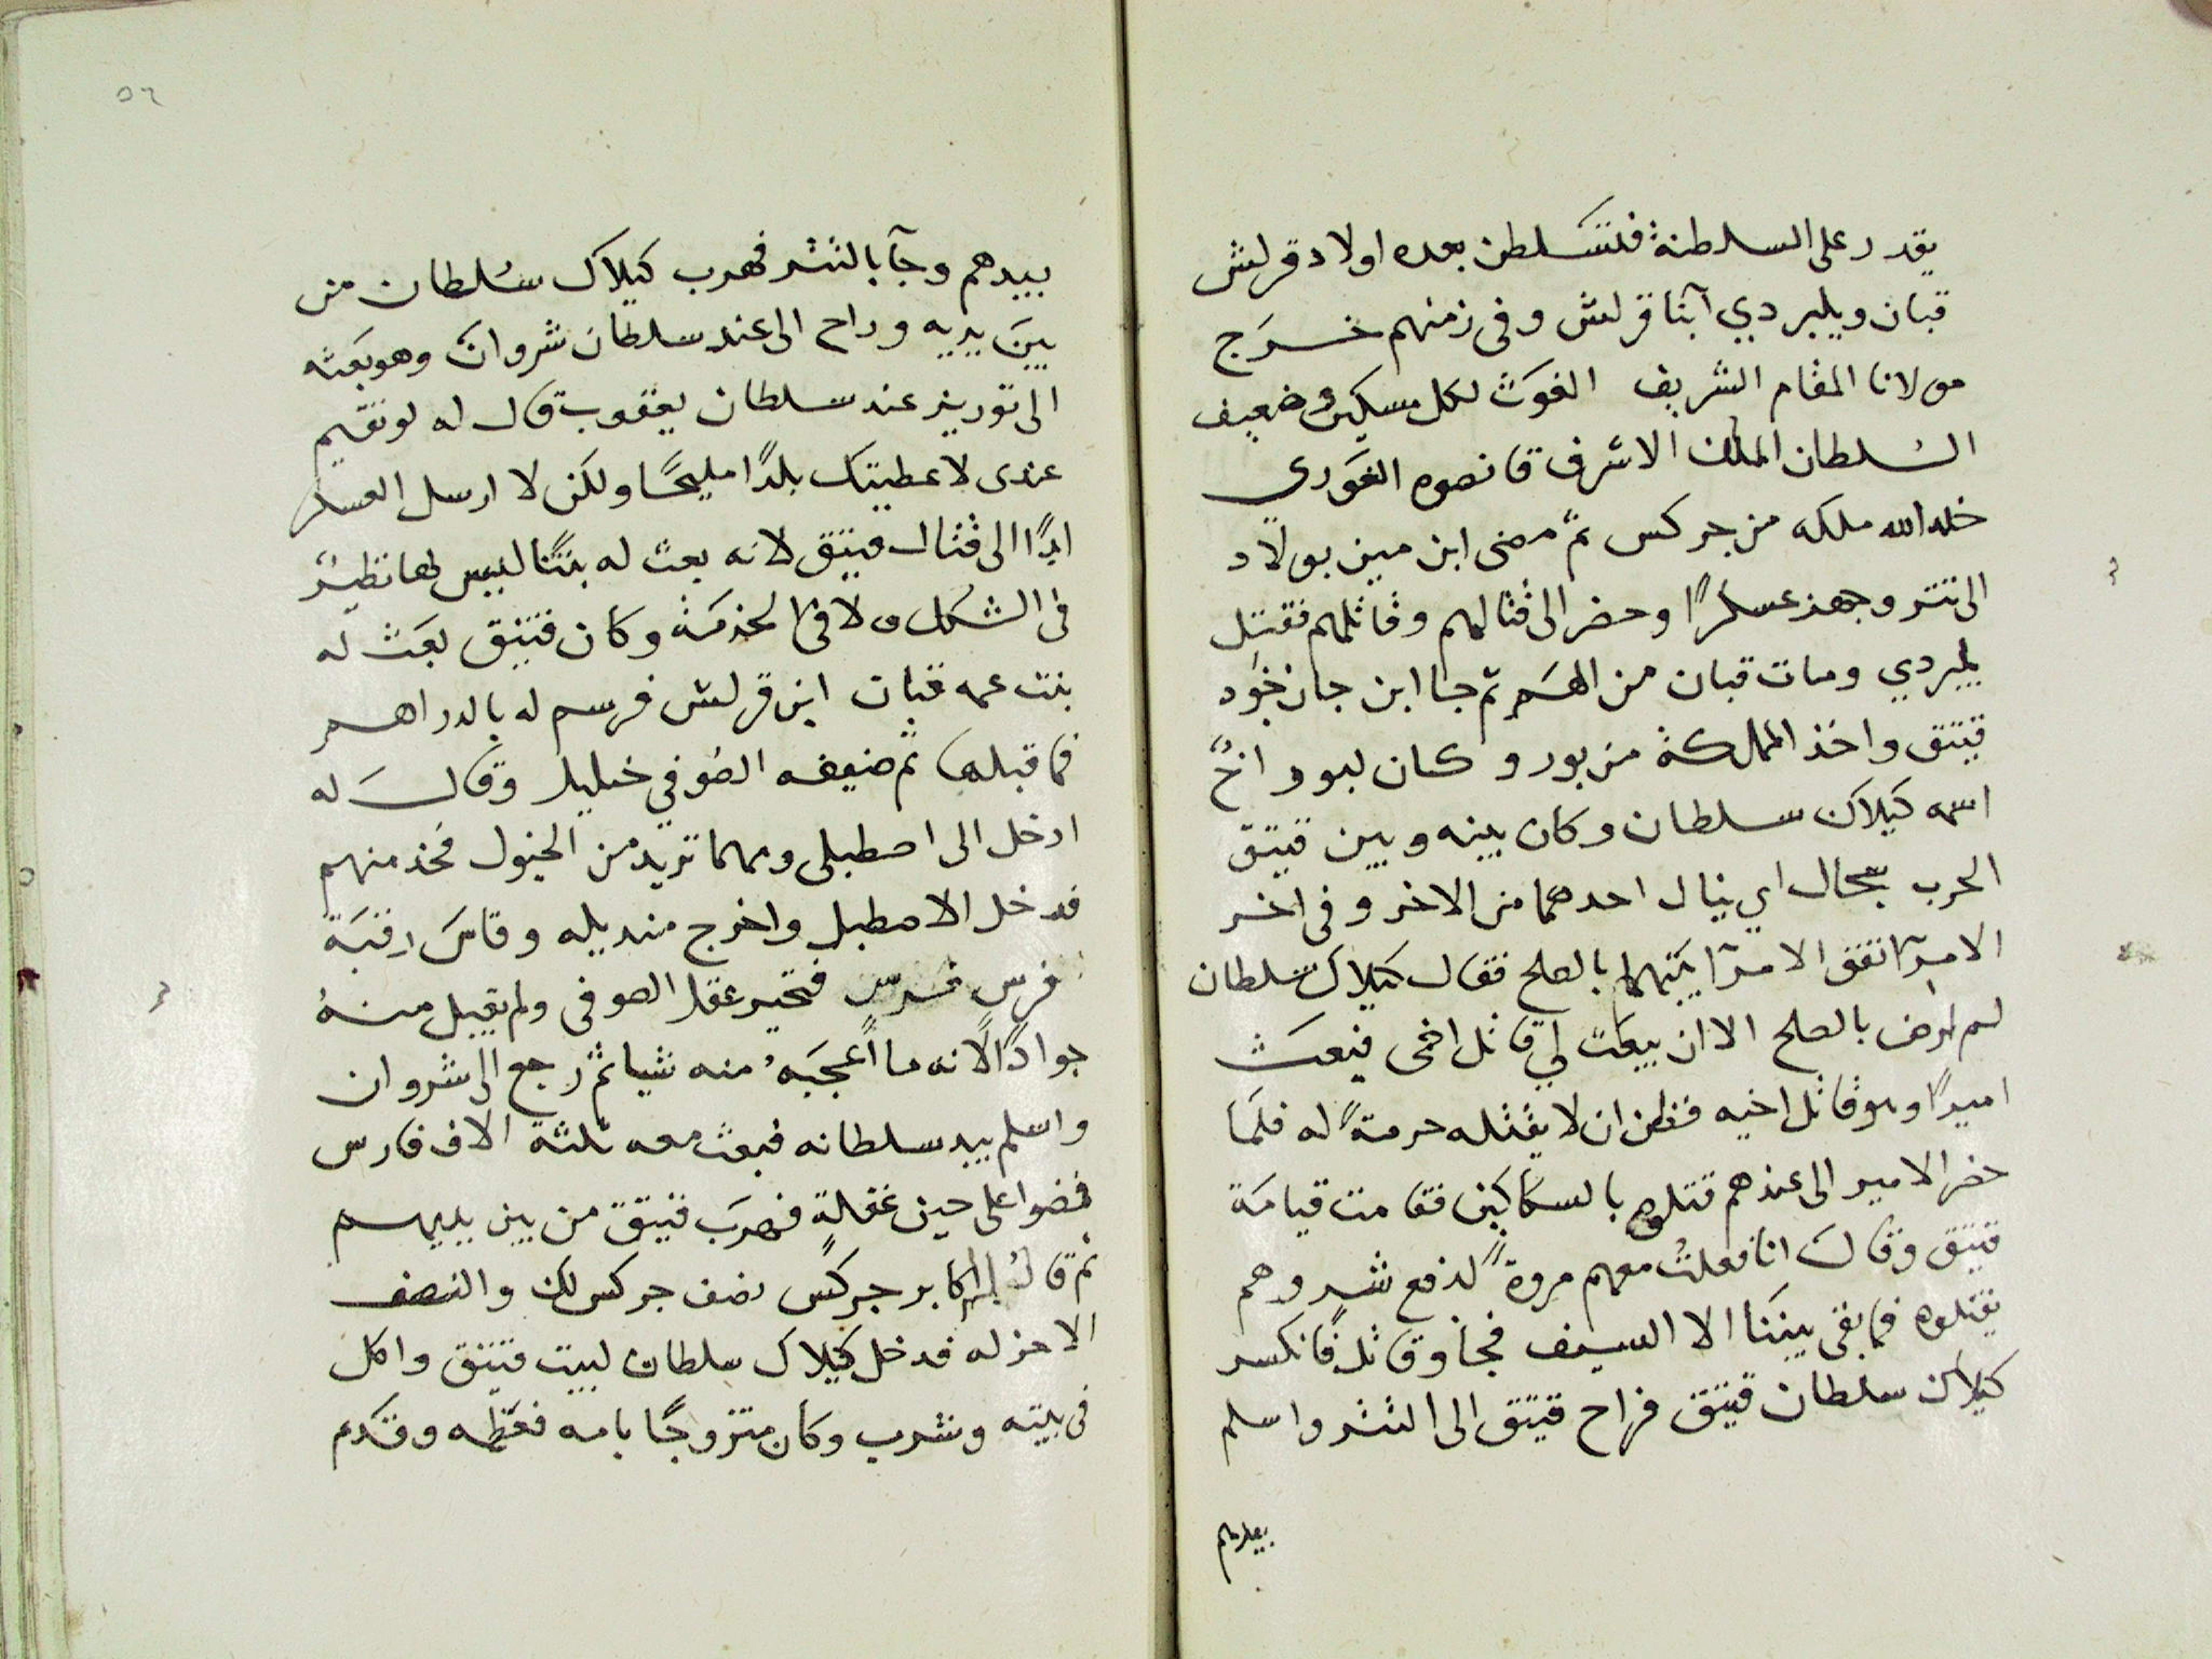 يقدر على السلطنة فتسلطن بعده اولاد قرلش
قبان ويلبردي ابنا قرلش وفى زمنهم خرج
مولانا المقام الشريف الغوث لكل مسكين وضعيف
السلطان الملك الاشرف قانصوه الغوري
خلد الله ملكه من جركس ثم مضى ابن مين بولاد
الى تتر وجهز عسكرًا وحضر الى قتالهم وقاتلهم فقتل
يلبردي ومات قبان من الهم ثم جا ابن جان خود
قيتق واخذ المملكة من بور و كان لبور اخٌ
اسمه كيلاك سلطان وكان بينه وبين قيتق
الحرب سجال اي ينال احدهما من الاخر وفى اخر
الامر اتفق الامرآ بينهما بالصلح فقال كيلاك سلطان
لم ارض بالصلح الا ان يبعث لي قاتل اخى فبعث
اميرًا وهو قاتل اخيه فظن ان لا يقتله حرمةً له فلما
حضر الامير الى عندهم قتلوه بالسكاكين فقامت قيامة
قيتق وقال انا فعلتُ معهم مروةً لدفع شر وهم
يقتلوه فما بقى بيننا الا السيف فجا وقاتل فانكسر
كيلاك سلطان قيتق فراح قيتق الى التتر واسلم
بيدهم
٥٦
بيدهم وجآ بالتتر فهرب كيلاك سلطان من
بين يديه وراح الى عند سلطان شروان وهو بعثه
الى توريز عند سلطان يعقوب قال له لو تقيم
عندى لاعطيتك بلدًا مليحًا ولكن لا ارسل العسكر
ابدًا الى قتال قيتق لانه بعث له بنتًا ليس لها نظير
فى الشكل ولا فى الخدمة وكان قيتق بعث له
بنت عمه قبان ابن قرلش فرسم له بالدراهم
فما قبلها ثم ضيفه الصوفي خليل وقال له
ادخل الى اصطبلى ومهما تريد من الخيول فخذ منهم
فدخل الاصطبل واخرج منديله وقاس رقبة
فرس فرس فتحير عقل الصوفى ولم يقبل منه
جوادًا لانه ما اعجبه منه شيا ثم رجع الى شروان
واسلم بيد سلطانه فبعث معه ثلثة الاف فارس
فمضوا على حين غفلةٍ فهرب قيتق من بين يديهم
ثم قال له اكابر جركس نصف جركس لك والنصف
الاخر له فدخل كيلاك سلطان لبيت قيتق واكل
فى بيته وشرب وكان متزوجًا بامه فعظمه وقدم